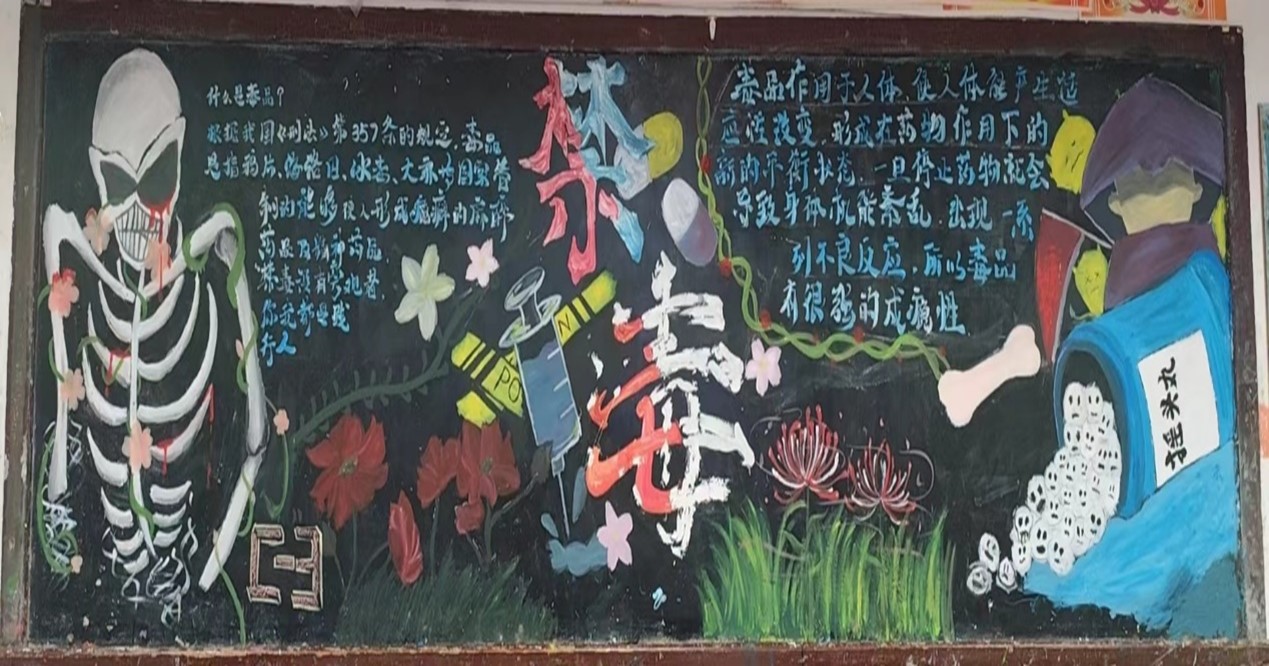 什么是毒品？
根据我国《刑法》第357条的规定，毒品
是指鸦片、海洛因、冰毒、大麻等国家管
制的能够使人形成瘾癖的麻醉
药品及精神药品，
禁毒没有旁观者，
你我都是践
行人
禁
毒
PO
N
毒品作用于人体，使人体能产生适
应性改变，形成在药物作用下的
新的平衡状态，一旦停止药物就会
导致身体机能紊乱，出现一系
列不良反应，所以毒品
有很强的成瘾性
摇头丸